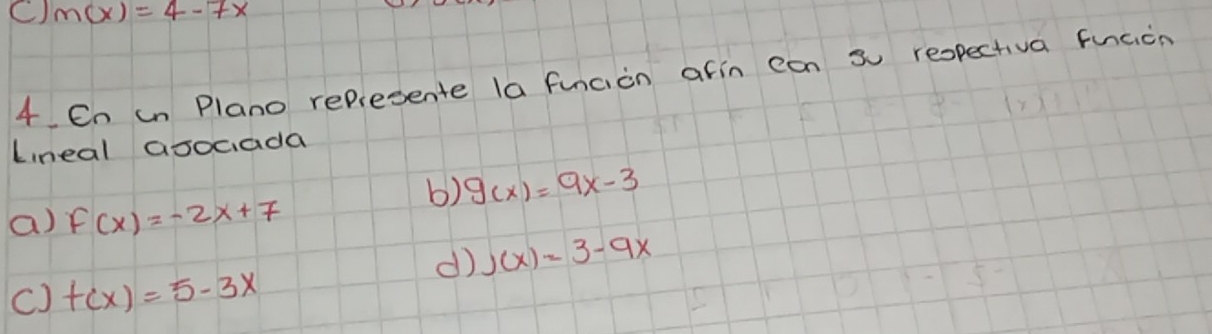 C) m(x) = 4 - 7x
4. En un Plano represente la función afín con su respectiva función
Lineal asociada
a) f(x) = -2x + 7
b) g(x) = 9x - 3
c) t(x) = 5 - 3x
d) J(x) = 3 - 9x